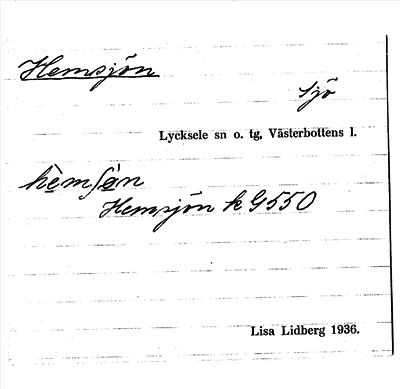 Hemsjön
sjö
Lycksele sn o. tg, Västerbottens l.
Hemsjön k G550
Lisa Lidberg 1936.